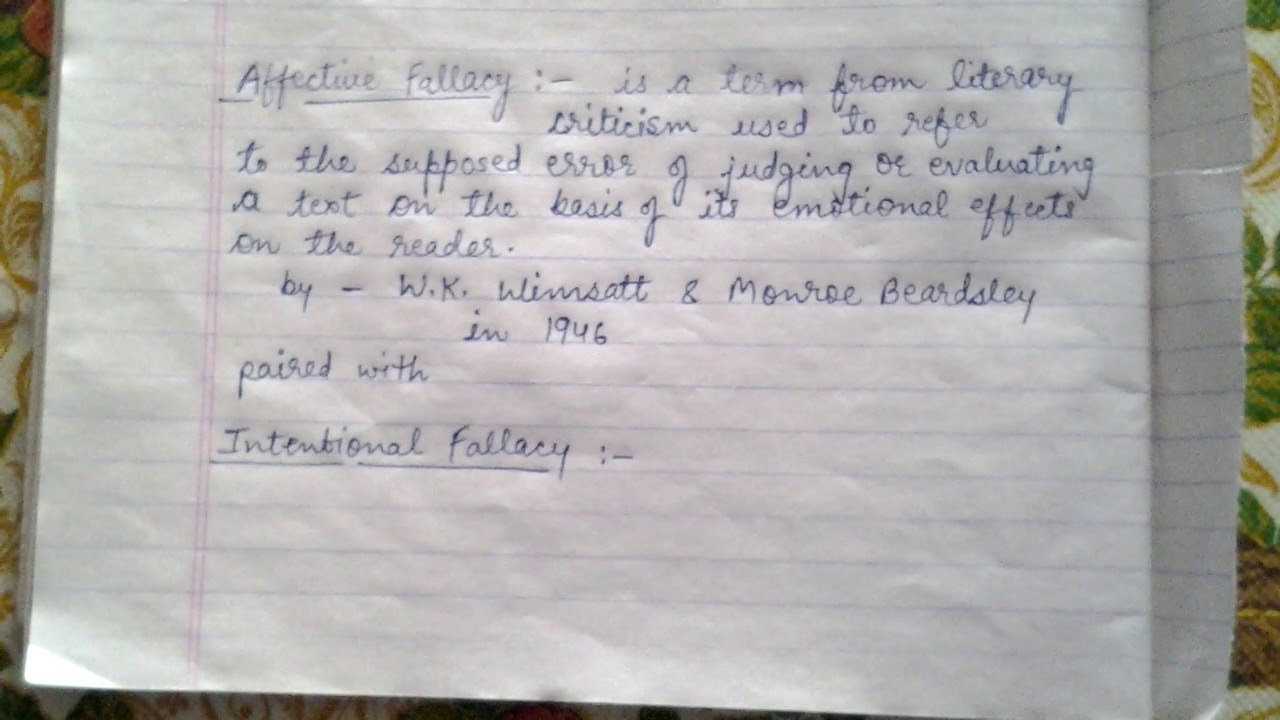 Affective Fallacy :- is a term from literary
criticism used to refer
to the supposed error of judging or evaluating
a text on the basis of its emotional effects
on the reader.
by - W.K. Wimsatt & Monroe Beardsley
in 1946
paired with
Intentional Fallacy :-